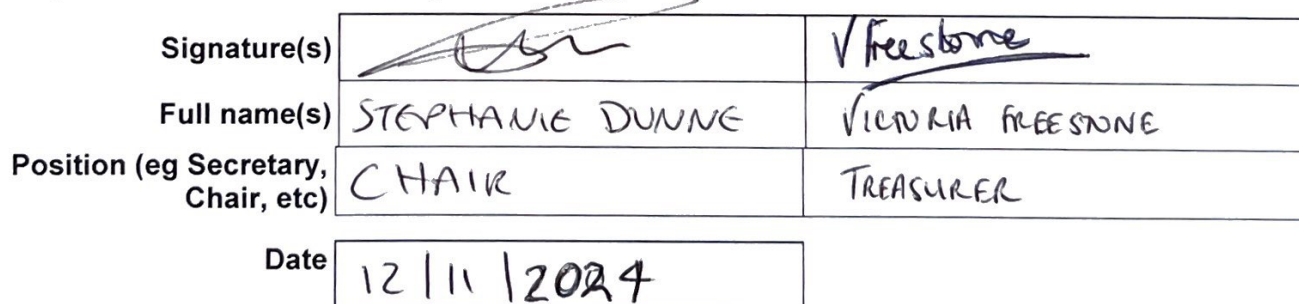 Signature(s) V Freestone
Full name(s) STEPHANIE DUNNE VICTORIA FREESTONE
Position (eg Secretary, Chair, etc) CHAIR TREASURER
Date 12/11/2024